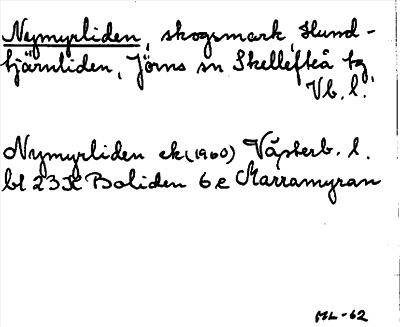 Nymyrliden, skogsmark, Hund-
tjärnliden, Jörns sn Skellefteå tg,
Vb. l.
Nymyrliden ek (1960) Västerb. l.
bl 23K Boliden 6e Marramyran
ML-62